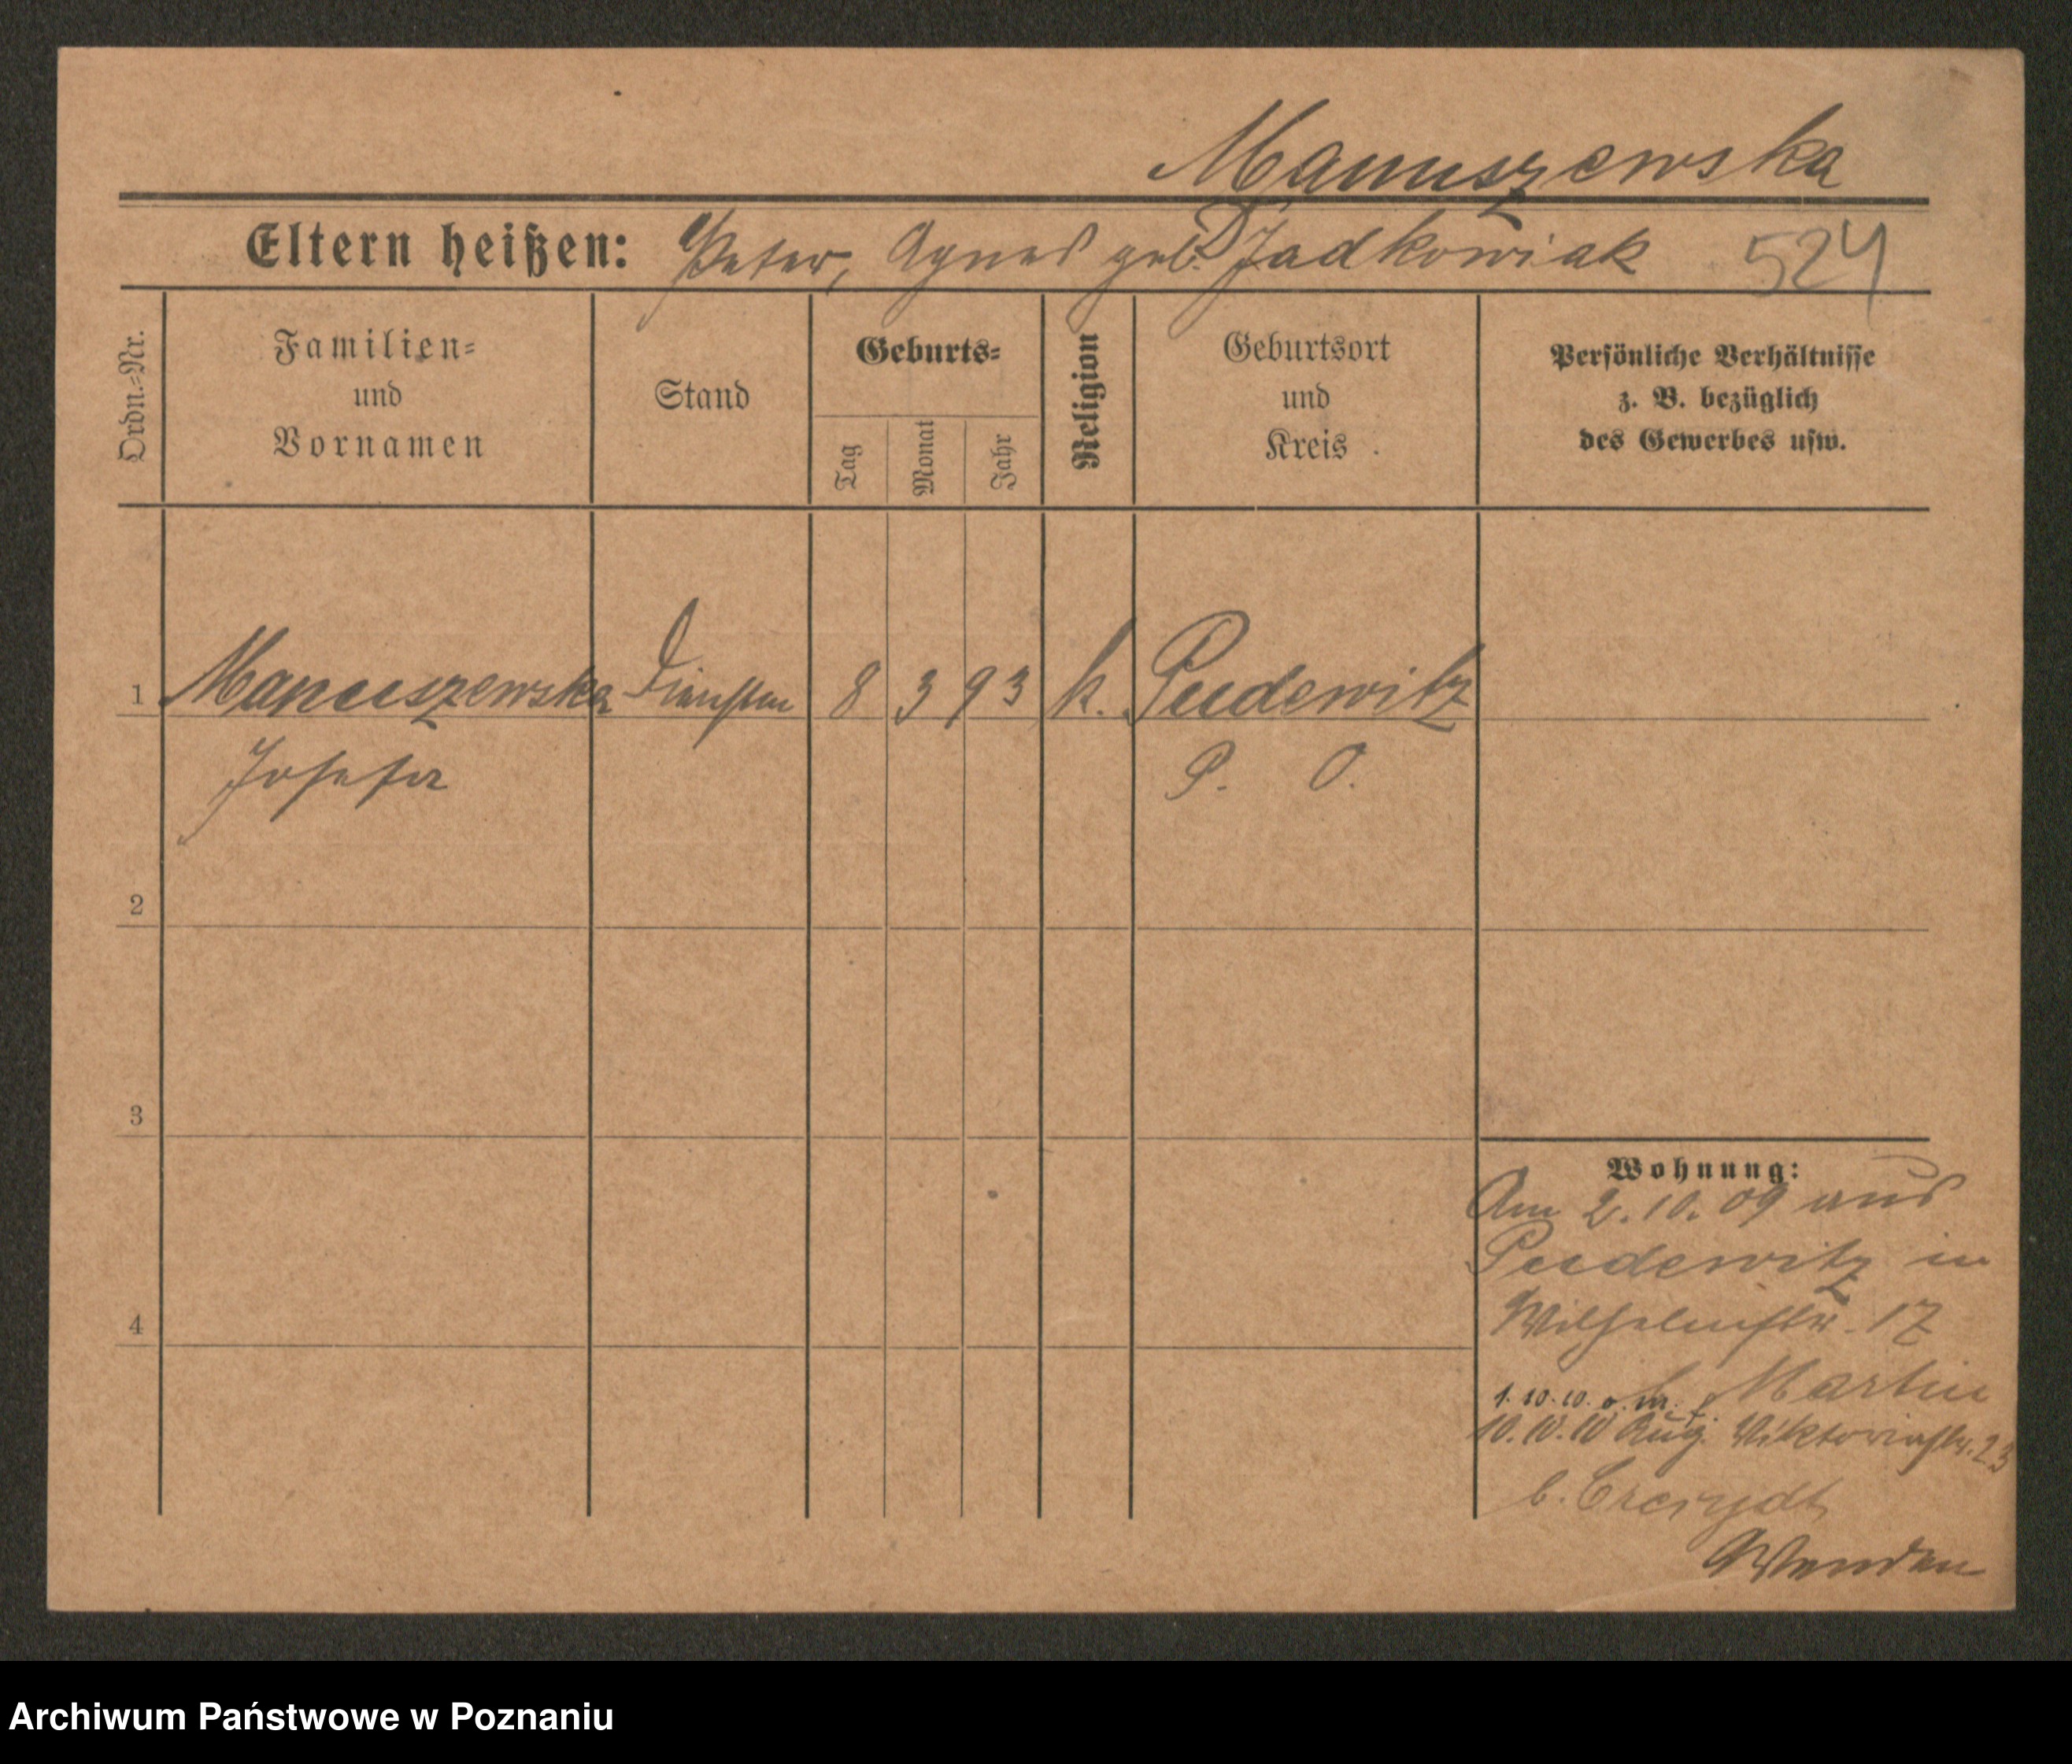 Manuszewska
Eltern heißen: Peter, Agnes geb. Jadkowiak 524
Ordn.-Nr.
Familien-
und
Vornamen
Stand
Geburts-
Tag
Monat
Jahr
Religion
Geburtsort
und
Kreis
Persönliche Verhältnisse
z. B. bezüglich
des Gewerbes usw.
1 Manuszewska 8 3 93 k. Pudewitz
Josefa P. O.
2
3
4
Wohnung:
Am 2.10.09 aus
Pudewitz in
Wilhelmstr. 17
b. Martin
1.10.10. o. m.
10.10.10 Aug. Viktoriastr. 23
b.
Wenden
Archiwum Państwowe w Poznaniu